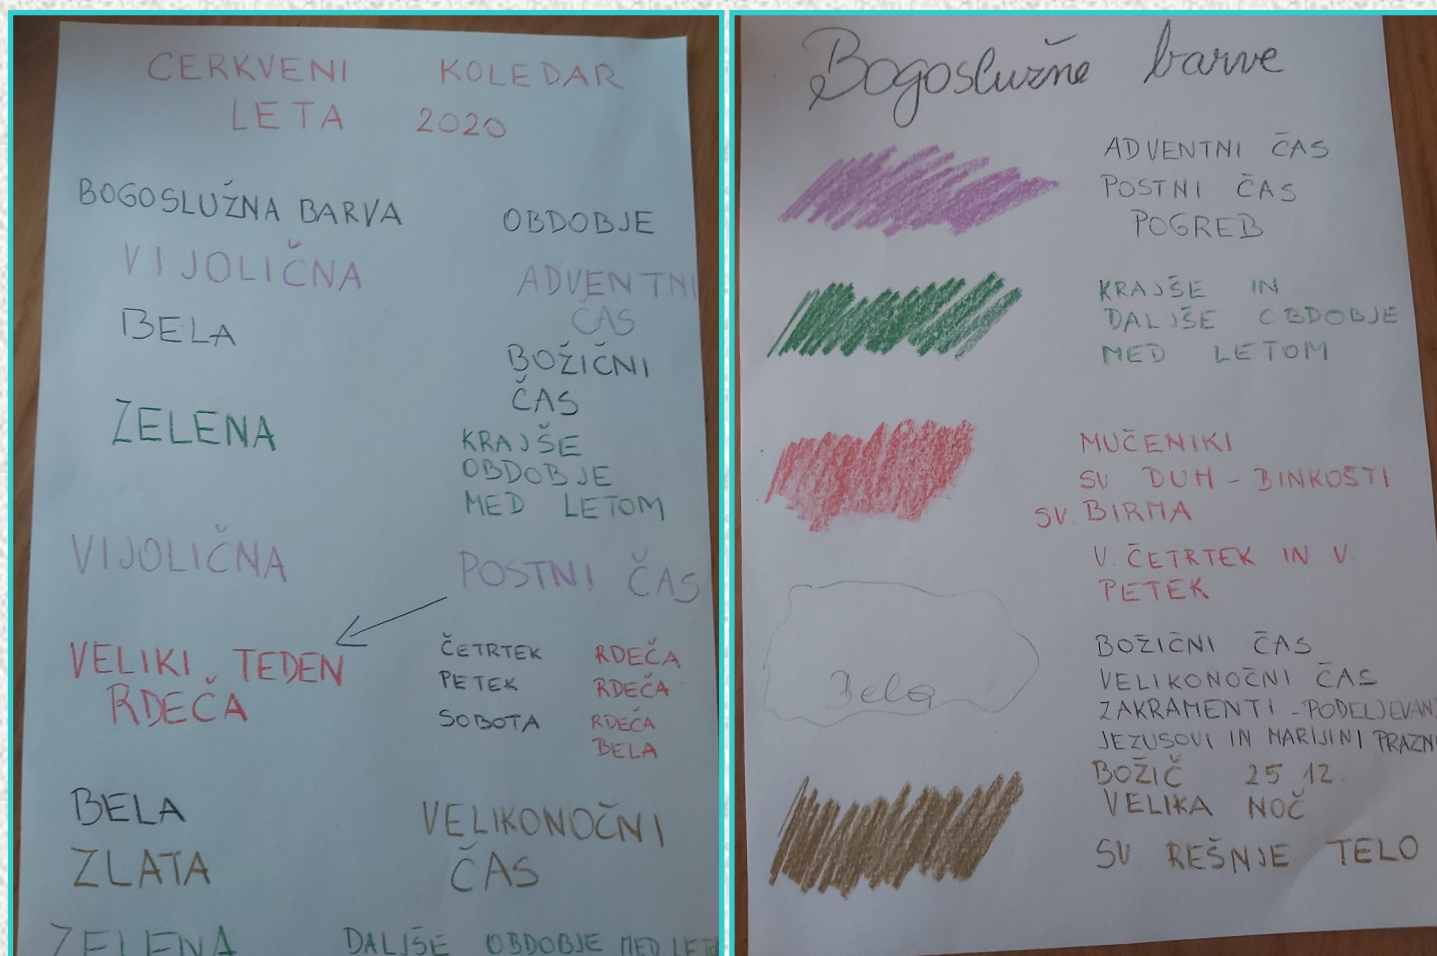 CERKVENI KOLEDAR
LETA 2020
BOGOSLUŽNA BARVA OBDOBJE
VIJOLIČNA ADVENTNI
ČAS
BELA BOŽIČNI
ČAS
ZELENA KRAJŠE
OBDOBJE
MED LETOM
VIJOLIČNA POSTNI ČAS
VELIKI TEDEN
RDEČA
ČETRTEK RDEČA
PETEK RDEČA
SOBOTA RDEČA
BELA
BELA VELIKONOČNI
ZLATA ČAS
ZELENA DALJŠE OBDOBJE MED LETO
Bogoslužne barve
ADVENTNI ČAS
POSTNI ČAS
POGREB
KRAJŠE IN
DALJŠE OBDOBJE
MED LETOM
MUČENIKI
SV DUH - BINKOŠTI
SV. BIRMA
V. ČETRTEK IN V.
PETEK
Bela
BOŽIČNI ČAS
VELIKONOČNI ČAS
ZAKRAMENTI - PODELJEVAN
JEZUSOVI IN MARIJINI PRAZN
BOŽIČ 25 12.
VELIKA NOČ
SV. REŠNJE TELO